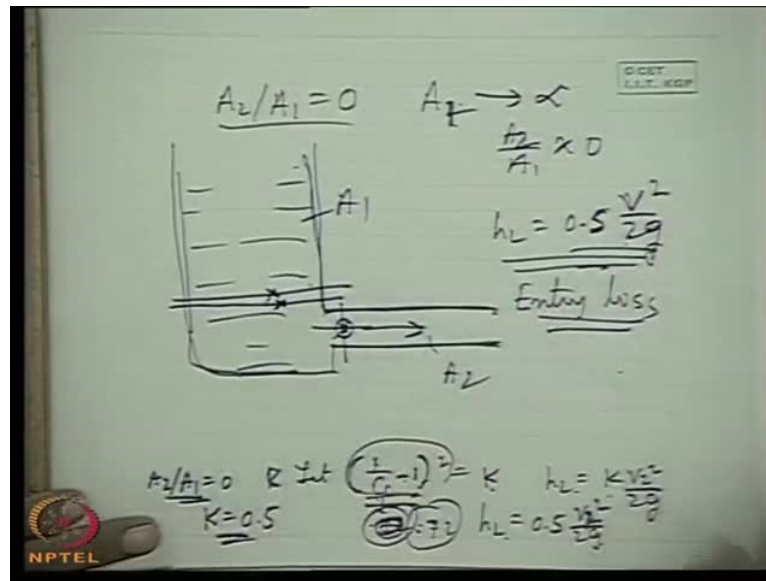 O CET
I.I.T. KGP
A₂/A₁ = 0 A₁ → ∝
A₂/A₁ ≈ 0
A₁
h_L = 0.5 V²/2g
Entry loss
A₂
A₂/A₁ = 0 Let (1/Cc - 1)² = K h_L = K V₂²/2g
K = 0.5 h_L = 0.5 V₂²/2g
NPTEL